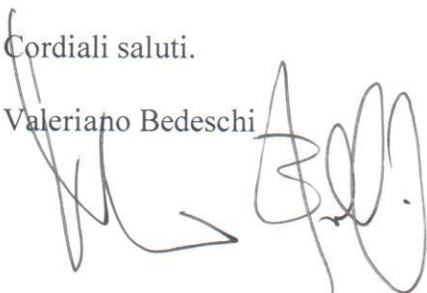 Cordiali saluti.
Valeriano Bedeschi